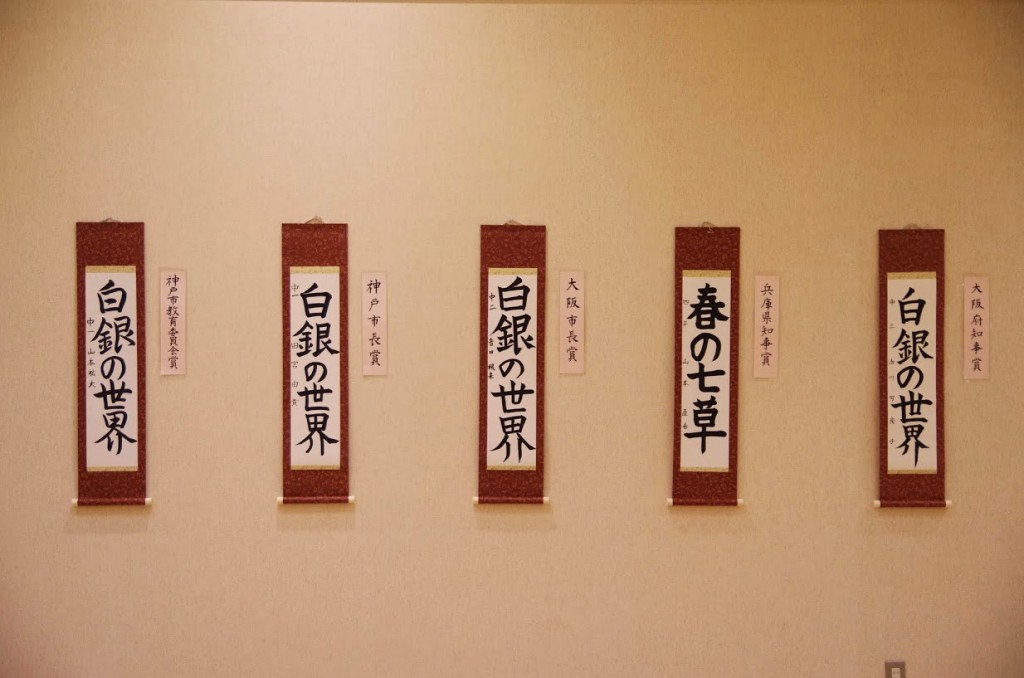 白銀の世界
中一 山本
神戸市教育委員会賞
白銀の世界
中一
神戸市長賞
白銀の世界
中二 吉田
大阪市長賞
春の七草
山本
兵庫県知事賞
白銀の世界
中二
大阪府知事賞